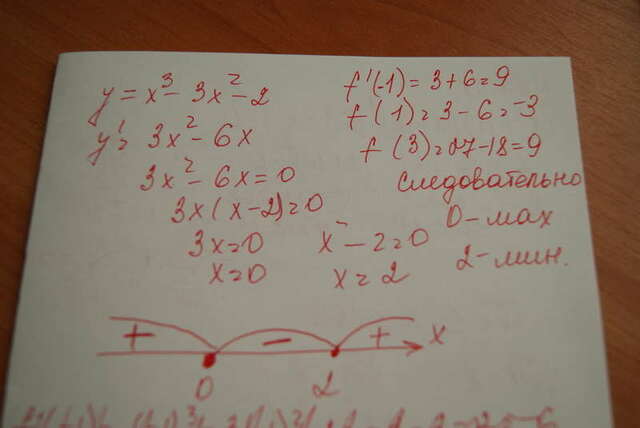 y = x³ - 3x² - 2
y' = 3x² - 6x
3x² - 6x = 0
3x(x-2) = 0
3x=0 x - 2 = 0
x=0 x = 2
f'(-1) = 3+6=9
f (1) = 3 - 6 = -3
f (3) = 27-18=9
следовательно
0-мах
2-мин.
+ - + x
0 2